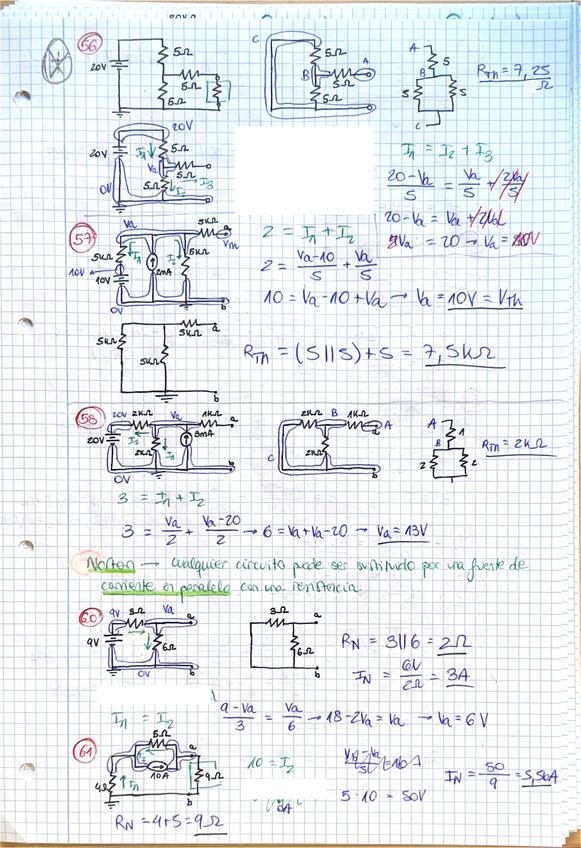 56
20V
5Ω
5Ω
5Ω
C
5Ω
B
A
5Ω
5Ω
A
5
B
5
5
C
R_Th = 7,25 Ω
20V
20V
I1
5Ω
Va
5Ω
5Ω
I3
0V
I1 = I2 + I3
(20-Va)/5 = Va/5 + 2Va/5
20-Va = Va + 2Va
2Va = 20 → Va =
57
Va
5KΩ
a
5KΩ
I1
2mA
I2
5KΩ
10V
10V
0V
b
2 = I1 + I2
2 = (Va-10)/5 + Va/5
10 = Va-10+Va → Va = 10V = VTh
5KΩ
5KΩ
5KΩ
a
b
R_Th = (5||5)+5 = 7,5KΩ
58
20V
2KΩ
Va
1KΩ
a
20V
I2
2KΩ
I1
b
0V
2KΩ
B
1KΩ
A
2KΩ
C
b
A
1
B
2
2
R_Th = 2KΩ
3 = I1 + I2
3 = Va/2 + (Va-20)/2 → 6 = Va+Va-20 → Va = 13V
Norton → cualquier circuito puede ser sustituido por una fuente de
corriente en paralelo con una resistencia.
60
9V
3Ω
Va
a
9V
6Ω
0V
b
3Ω
a
6Ω
b
R_N = 3||6 = 2Ω
I_N = 6V/2Ω = 3A
I1 = I2
(9-Va)/3 = Va/6 → 18-2Va = Va → Va = 6V
61
5Ω
a
10A
4Ω
I1
9Ω
b
10 = I2
5·10 = 50V
I_N = 50/9 = 5,56A
R_N = 4+5 = 9Ω